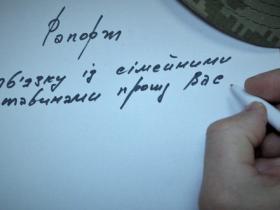 Рапорт
зв'язку із сімейними
ставинами прошу Вас